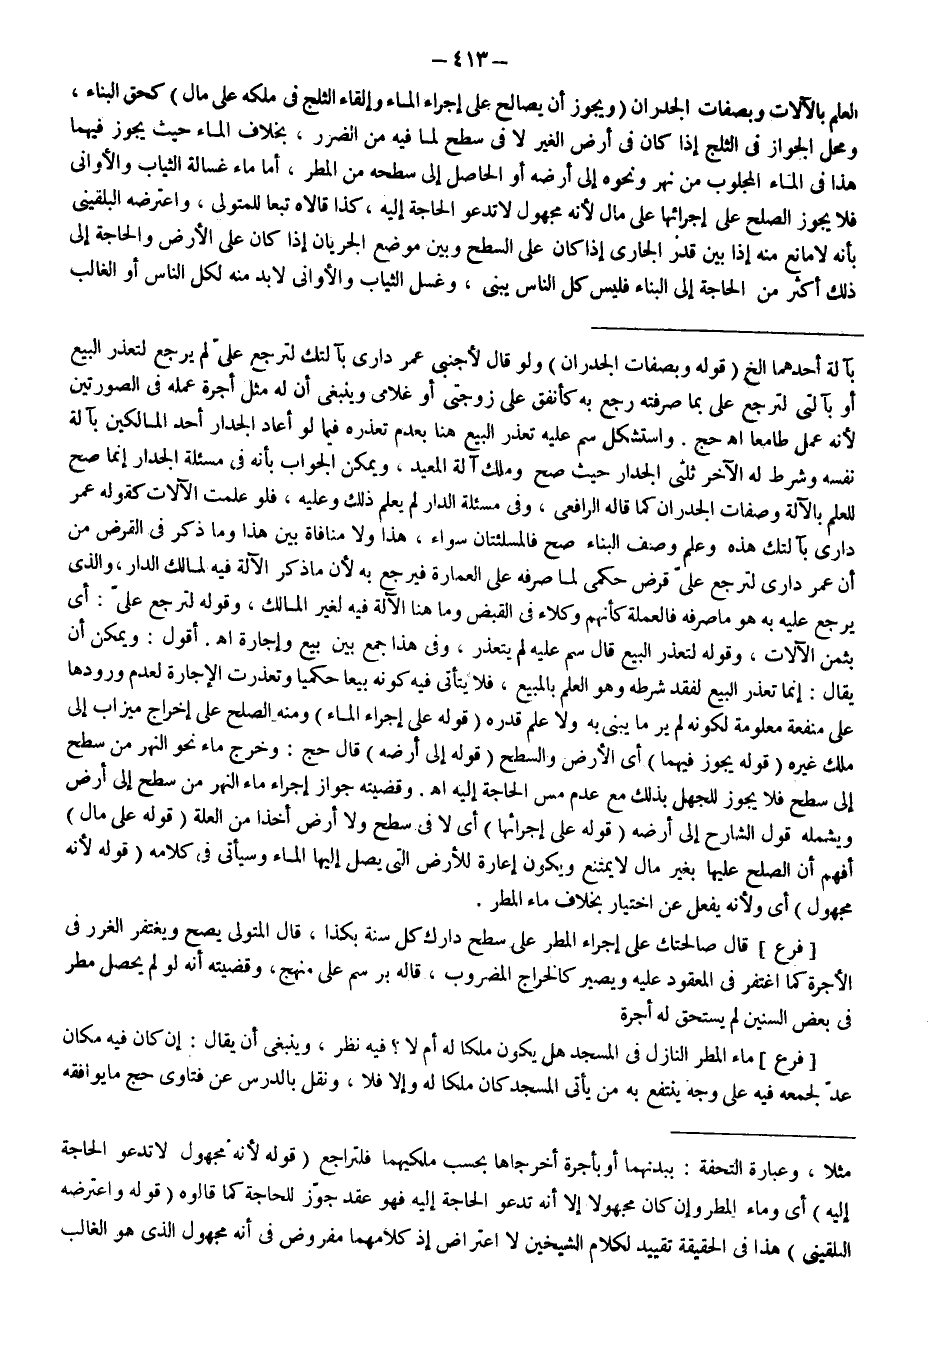 - ٤١٣ -
العلم بالآلات وبصفات الجدران (ويجوز أن يصالح على إجراء الماء وإلقاء الثلج فى ملكه على مال) كحق البناء ،
ومحل الجواز فى الثلج إذا كان فى أرض الغير لا فى سطح لما فيه من الضرر ، بخلاف الماء حيث يجوز فيهما
هذا فى الماء المجلوب من نهر ونحوه إلى أرضه أو الحاصل إلى سطحه من المطر ، أما ماء غسالة الثياب والأوانى
فلا يجوز الصلح على إجرائها على مال لأنه مجهول لاتدعو الحاجة إليه ، كذا قالاه تبعا للمتولى ، واعترضه البلقينى
بأنه لامانع منه إذا بين قدر الجارى إذا كان على السطح وبين موضع الجريان إذا كان على الأرض والحاجة إلى
ذلك أكثر من الحاجة إلى البناء فليس كل الناس يبنى ، وغسل الثياب والأوانى لابد منه لكل الناس أو الغالب
بآلة أحدهما الخ ( قوله وبصفات الجدران ) ولو قال لأجنبي عمر دارى بآلتك لترجع علىّ لم يرجع لتعذر البيع
أو بآلتى لترجع على بما صرفته رجع به كأنفق على زوجتى أو غلامى وينبغى أن له مثل أجرة عمله فى الصورتين
لأنه عمل طامعا اه حج . واستشكل سم عليه تعذر البيع هنا بعدم تعذره فيما لو أعاد الجدار أحد المالكين بآلة
نفسه وشرط له الآخر ثلثى الجدار حيث صح وملك آلة المعيد ، ويمكن الجواب بأنه فى مسئلة الجدار إنما صح
للعلم بالآلة وصفات الجدران كما قاله الرافعى ، وفى مسئلة الدار لم يعلم ذلك وعليه ، فلو علمت الآلات كقوله عمر
دارى بآلتك هذه وعلم وصف البناء صح فالمسئلتان سواء ، هذا ولا منافاة بين هذا وما ذكر فى القرض من
أن عمر دارى لترجع علىّ قرض حكمى لما صرفه على العمارة فيرجع به لأن ماذكر الآلة فيه لمالك الدار ، والذى
يرجع عليه به هو ماصرفه فالعملة كأنهم وكلاء فى القبض وما هنا الآلة فيه لغير المالك ، وقوله لترجع علىّ : أى
بثمن الآلات ، وقوله لتعذر البيع قال سم عليه لم يتعذر ، وفى هذا جمع بين بيع وإجارة اه . أقول : ويمكن أن
يقال : إنما تعذر البيع لفقد شرطه وهو العلم بالمبيع ، فلا يتأتى فيه كونه بيعا حكميا وتعذرت الإجارة لعدم ورودها
على منفعة معلومة لكونه لم ير ما يبنى به ولا علم قدره ( قوله على إجراء الماء ) ومنه الصلح على إخراج ميزاب إلى
ملك غيره ( قوله يجوز فيهما ) أى الأرض والسطح ( قوله إلى أرضه ) قال حج : وخرج ماء نحو النهر من سطح
إلى سطح فلا يجوز للجهل بذلك مع عدم مس الحاجة إليه اه . وقضيته جواز إجراء ماء النهر من سطح إلى أرض
ويشمله قول الشارح إلى أرضه ( قوله على إجرائها ) أى لا فى سطح ولا أرض أخذا من العلة ( قوله على مال )
أفهم أن الصلح عليها بغير مال لايمتنع ويكون إعارة للأرض التى يصل إليها الماء وسيأتى فى كلامه ( قوله لأنه
مجهول ) أى ولأنه يفعل عن اختيار بخلاف ماء المطر .
[ فرع ] قال صالحتك على إجراء المطر على سطح دارك كل سنة بكذا ، قال المتولى يصح ويغتفر الغرر فى
الأجرة كما اغتفر فى المعقود عليه ويصير كالخراج المضروب ، قاله بر سم على منهج ، وقضيته أنه لو لم يحصل مطر
فى بعض السنين لم يستحق له أجرة
[ فرع ] ماء المطر النازل فى المسجد هل يكون ملكا له أم لا ؟ فيه نظر ، وينبغى أن يقال : إن كان فيه مكان
عدّ لجمعه فيه على وجه ينتفع به من يأتى المسجد كان ملكا له وإلا فلا ، ونقل بالدرس عن فتاوى حج مايوافقه
مثلا ، وعبارة التحفة : ببدنهما أو بأجرة أخرجاها بحسب ملكيهما فلتراجع ( قوله لأنه مجهول لاتدعو الحاجة
إليه ) أى وماء المطر وإن كان مجهولا إلا أنه تدعو الحاجة إليه فهو عقد جوّز للحاجة كما قالوه ( قوله واعترضه
البلقينى ) هذا فى الحقيقة تقييد لكلام الشيخين لا اعتراض إذ كلامهما مفروض فى أنه مجهول الذى هو الغالب